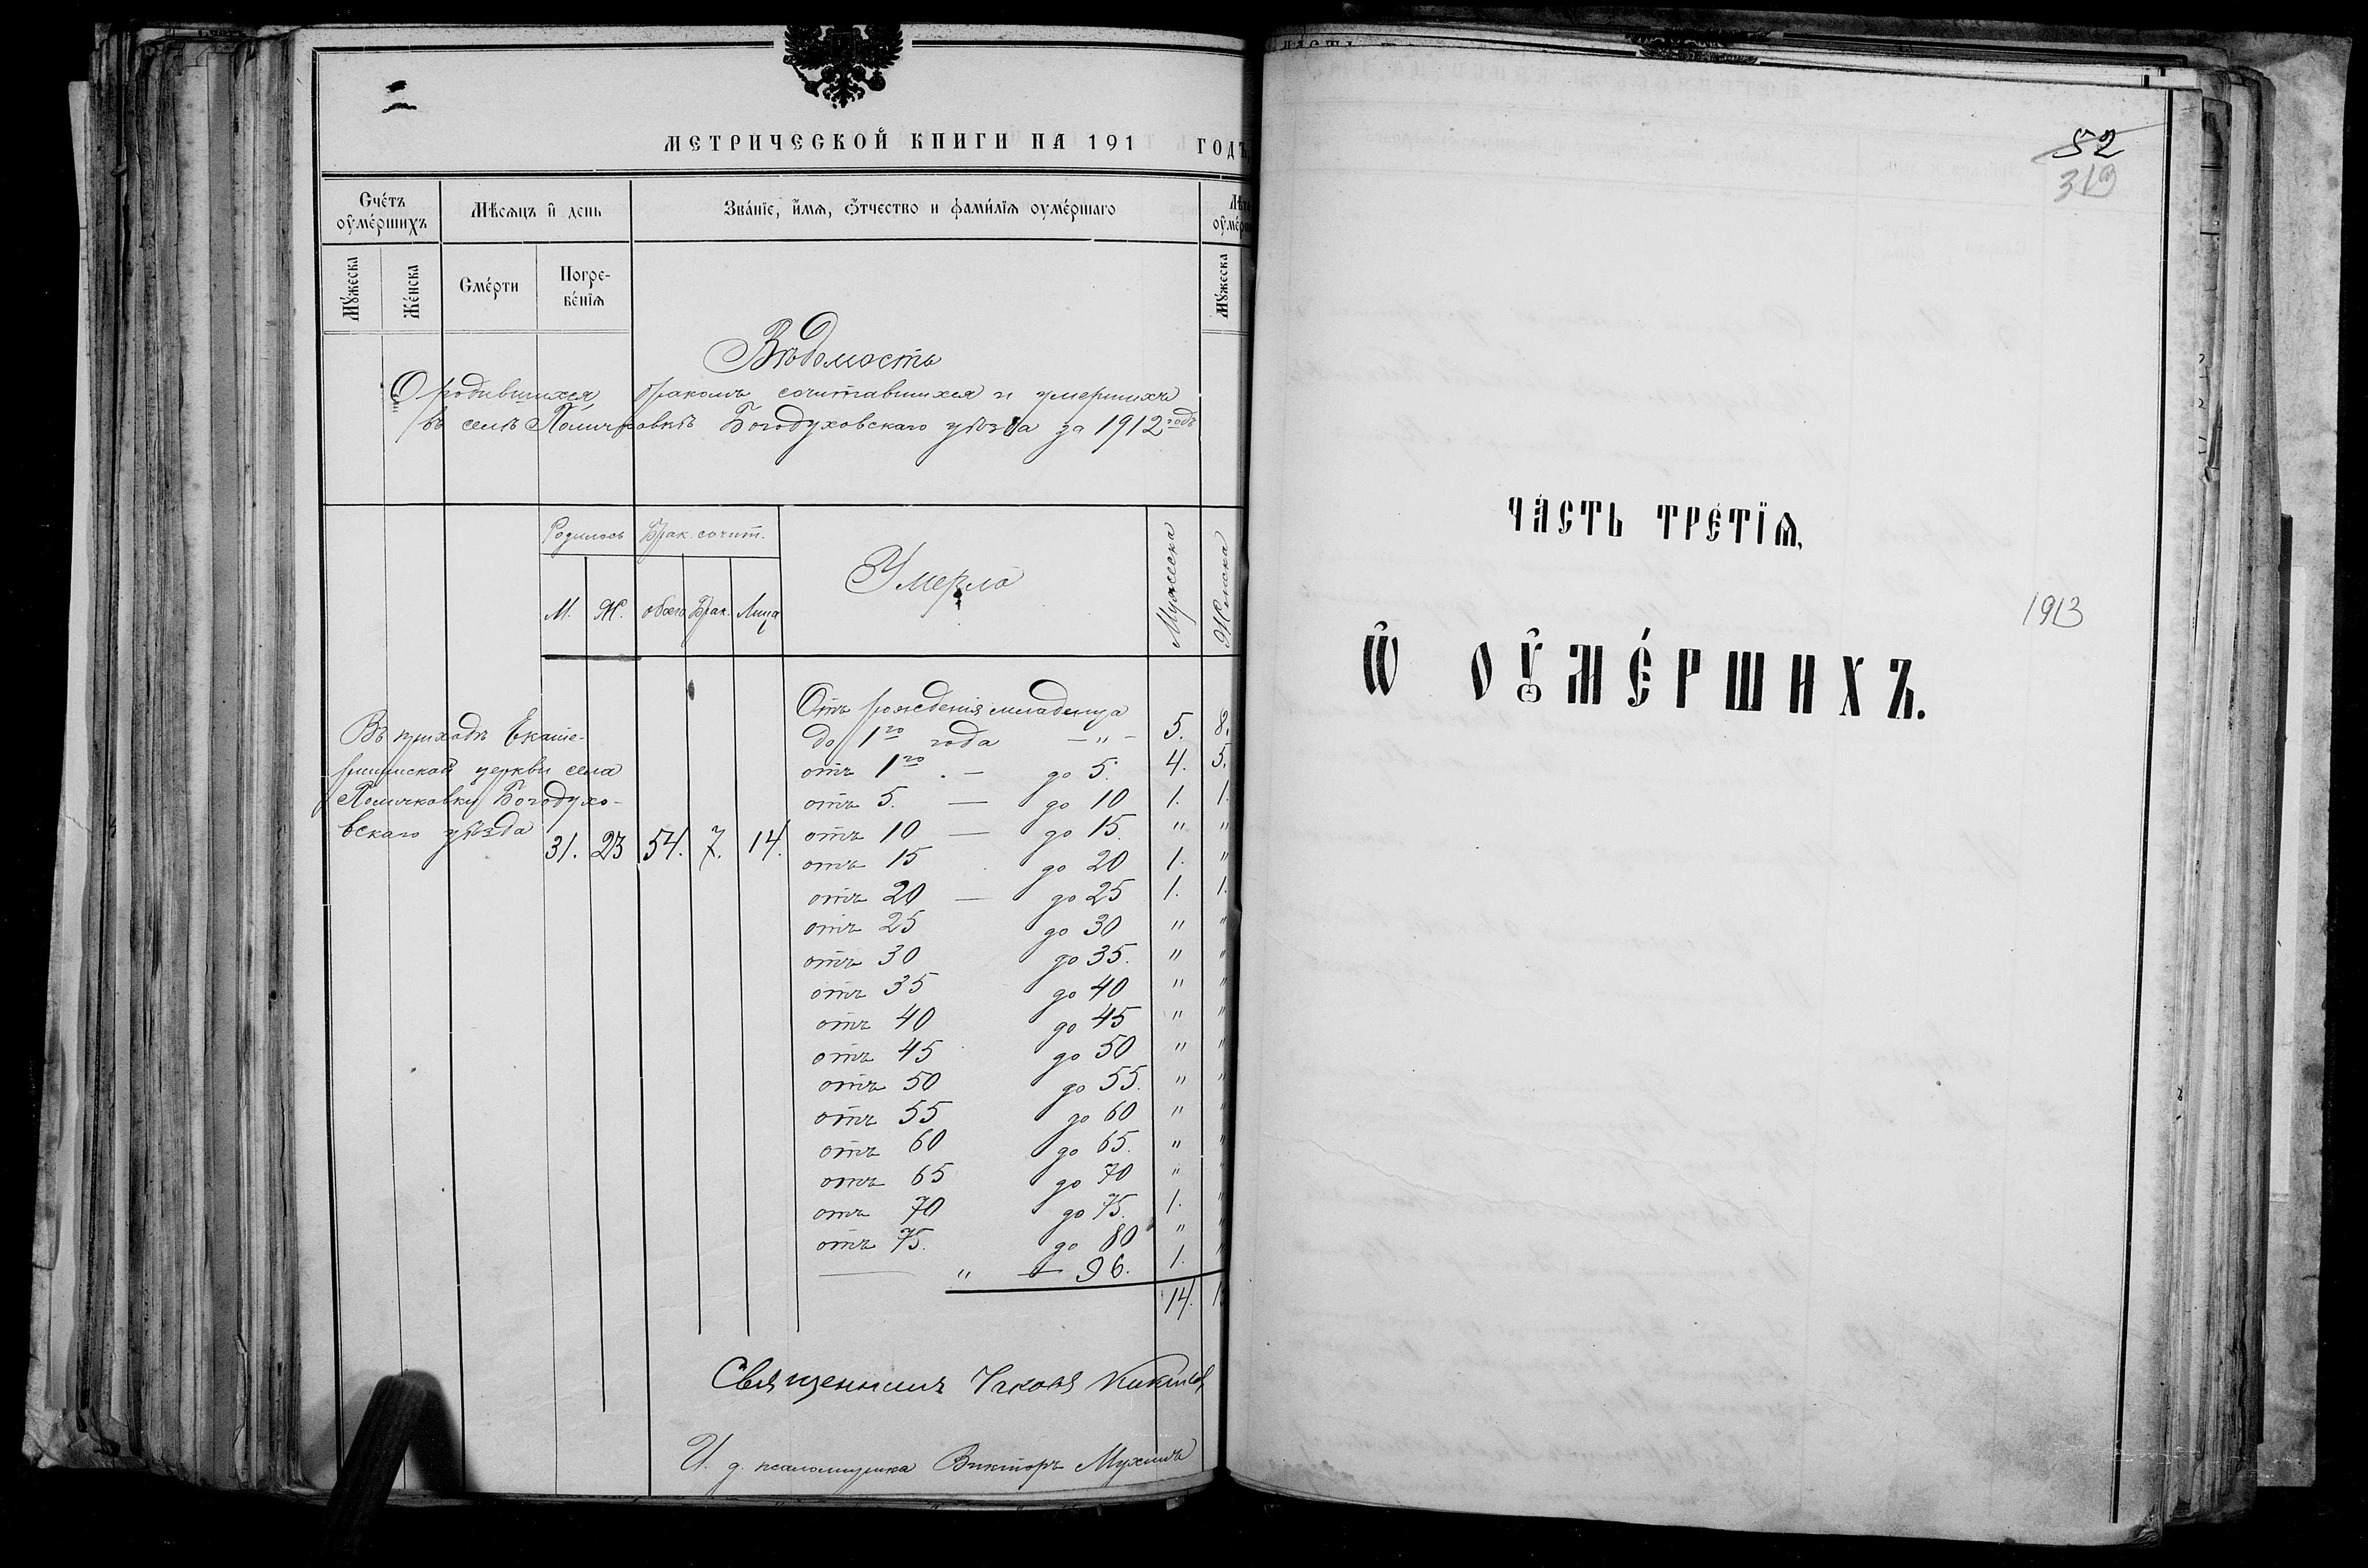 МЕТРИЧЕСКОЙ КНИГИ НА 191 ГОДЪ
Счéтъ оу҆мéршихъ
Мѣсяцъ и҆ день
Звáнїе, и҆́мѧ, ѻ҆́тчество и фамилїѧ оумéршаго
Мꙋжеска
Жéнска
Смéрти
Погребéнїѧ
Мꙋжеска
Вѣдомость
О родившихся, бракомъ сочетавшихся и умершихъ
въ селѣ Поличковкѣ Богодуховскаго уѣзда за 1912 годъ
Родилось
Брак. сочит.
Умерло
Мужеска
Женска
М.
Ж.
обоего
Брак.
Лица
Отъ рожденія младенца
до 1го года — " — 5. 8.
отъ 1го — до 5. 4. 5.
отъ 5. — до 10 1. 1.
отъ 10 — до 15. " "
отъ 15 до 20 1. "
отъ 20 — до 25 1. 1.
отъ 25 до 30 " "
отъ 30 до 35. " "
отъ 35 до 40 " "
отъ 40 до 45 " "
отъ 45 до 50 " "
отъ 50 до 55. " "
отъ 55 до 60 " "
отъ 60 до 65. " "
отъ 65 до 70 " "
отъ 70 до 75. 1. "
отъ 75. до 80 " "
" — 96. 1. "
14.
Въ приходѣ Екате-
рининской церкви села
Поличковки Богодухо-
вскаго уѣзда 31. 23 54. 7. 14.
Священникъ Іаковъ
И. д. псаломщика Викторъ Мухинъ
52
319
ЧАСТЬ ТРЕТЇѦ,
1913
Ѽ ОУ҆МÉРШИХЪ.